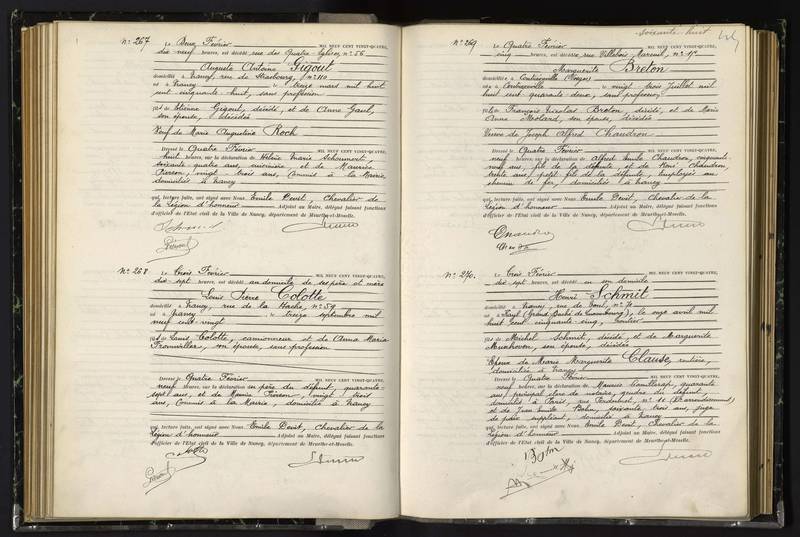 N° 267
Le Deux Février MIL NEUF CENT VINGT-QUATRE,
dix neuf heures, est décédé, rue des Quatre Eglises, n° 56
Auguste Antoine Gigout
domicilié à Nancy, rue de Strasbourg, n° 110
né à Nancy le treize mars mil huit
cent cinquante huit, sans profession
fils de Etienne Gigout, décédé, et de Anne Gaul,
son épouse, décédée
Veuf de Marie Augustine Roch
Dressé le Quatre Février MIL NEUF CENT VINGT-QUATRE,
huit heures, sur la déclaration de Hélène Marie
soixante quatre ans, et de Maurice
Pierson, vingt trois ans, Commis à la Mairie,
domiciliés à Nancy
qui, lecture faite, ont signé avec Nous, Emile Devit, Chevalier de
la Légion d'honneur Adjoint au Maire, délégué faisant fonctions
d'officier de l'Etat civil de la Ville de Nancy, département de Meurthe-et-Moselle.
N° 268
Le Trois Février MIL NEUF CENT VINGT-QUATRE,
dix sept heures, est décédé au domicile de ses père et mère
Louis Colotte
domicilié à Nancy, rue de la Hache, n° 59
né à Nancy le treize septembre mil
neuf cent vingt
fils de Louis Colotte, camionneur et de Anna Maria
son épouse, sans profession
Dressé le Quatre Février MIL NEUF CENT VINGT-QUATRE,
neuf heures, sur la déclaration du père du défunt, quarante-
sept ans, et de Maurice Pierson, vingt trois
ans, Commis à la Mairie, domiciliés à Nancy
qui, lecture faite, ont signé avec Nous, Emile Devit, Chevalier de la
Légion d'honneur Adjoint au Maire, délégué faisant fonctions
d'officier de l'Etat civil de la Ville de Nancy, département de Meurthe-et-Moselle.
soixante-huit
N° 269
Le Quatre Février MIL NEUF CENT VINGT-QUATRE,
cinq heures, est décédée rue Villebois-Mareuil, n°
Marguerite Breton
domiciliée à Contrexéville (Vosges)
née à Contrexéville le vingt trois Juillet mil
huit cent quarante deux, sans profession
fille de François Nicolas Breton, décédé, et de Marie
Anne son épouse, décédée
Veuve de Joseph Alfred Chaudron
Dressé le Quatre Février MIL NEUF CENT VINGT-QUATRE,
neuf heures, sur la déclaration de Alfred Emile Chaudron, cinquante-
neuf ans, fils de la défunte et de René Chaudron,
trente ans, petit fils de la défunte, employés au
chemin de fer, domiciliés à Nancy
qui, lecture faite, ont signé avec Nous, Emile Devit, Chevalier de la
Légion d'honneur Adjoint au Maire, délégué faisant fonctions
d'officier de l'Etat civil de la Ville de Nancy, département de Meurthe-et-Moselle.
N° 270.
Le Trois Février MIL NEUF CENT VINGT-QUATRE,
dix sept heures, est décédé en son domicile
Henri Schmit
domicilié à Nancy, rue de Toul, n° 70
né à Kayl (Grand Duché de Luxembourg), le onze avril mil
huit cent cinquante cinq, rentier
fils de Michel Schmit, décédé, et de Marguerite
son épouse, décédée
Epoux de Marie Marguerite Clause, rentière,
domiciliée à Nancy
Dressé le Quatre Février MIL NEUF CENT VINGT-QUATRE,
neuf heures, sur la déclaration de Maurice quarante
ans, principal clerc de notaire, gendre du défunt,
domicilié à Paris, rue
et de Jean Emile Bohn, soixante trois ans, juge
de paix suppléant, domicilié à Nancy
qui, lecture faite, ont signé avec Nous, Emile Devit, Chevalier de la
Légion d'honneur Adjoint au Maire, délégué faisant fonctions
d'officier de l'Etat civil de la Ville de Nancy, département de Meurthe-et-Moselle.
Bohn